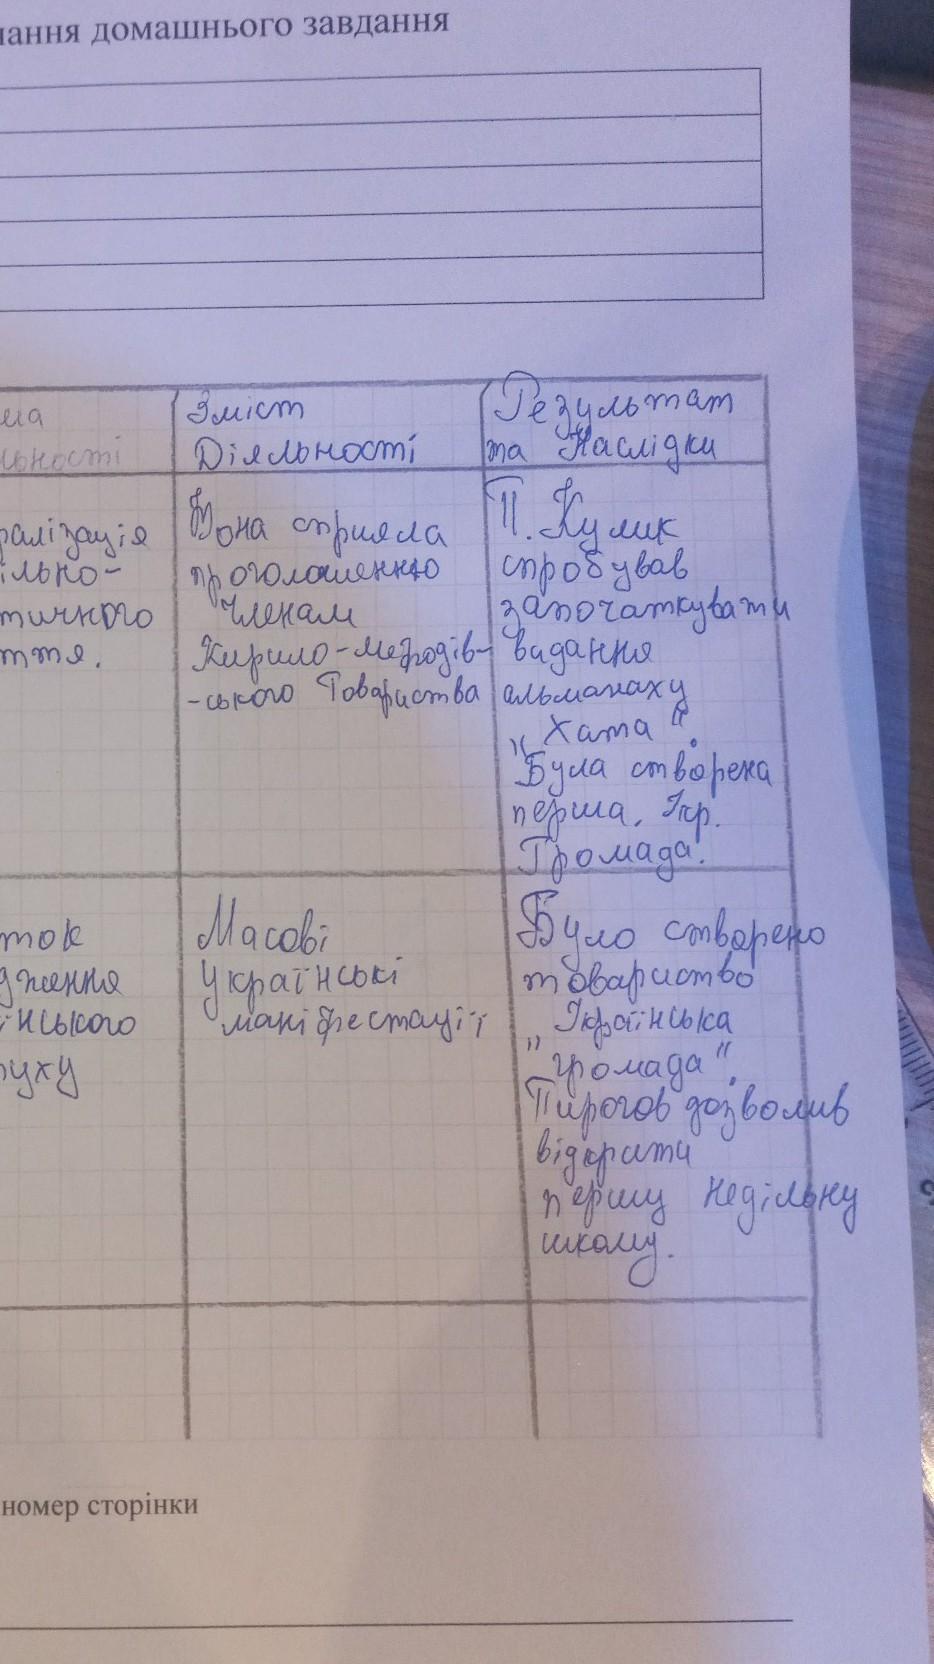 лання домашнього завдання
ма
льності
Зміст
Діяльності
Результат
та Наслідки
ралізація
ільно-
тичного
ття.
Вона сприяла
проголошенню
членам
Кирило-мефодів-
-ського Товариства
П. Кулик
спробував
започаткувати
видання
альманаху
„Хата".
Була створена
перша. Укр.
Громада.
ток
дження
їнського
руху
Масові
українські
маніфестації
Було створено
товариство
„Українська
громада".
Пирогов дозволив
відкрити
першу недільну
школу.
номер сторінки